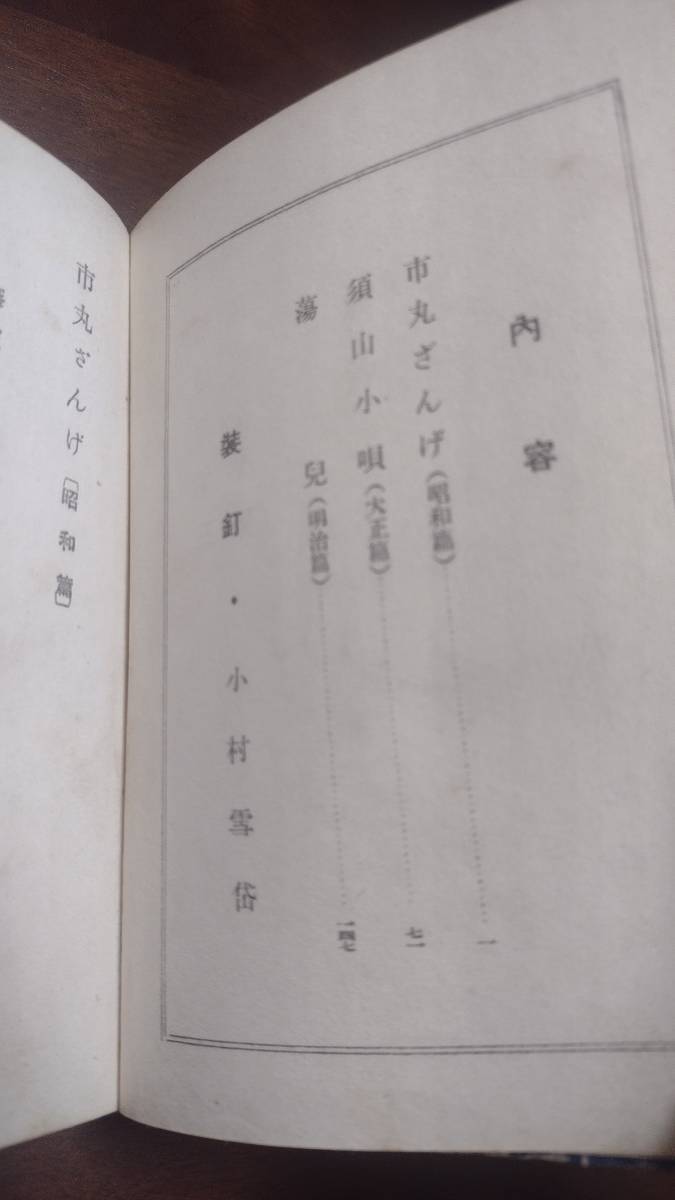 內容
市丸ざんげ(昭和篇)……………………一
須山小唄(大正篇)……………………七一
蕩兒(明治篇)……………………一四七
裝釘・小村雪岱
市丸ざんげ〔昭和篇〕